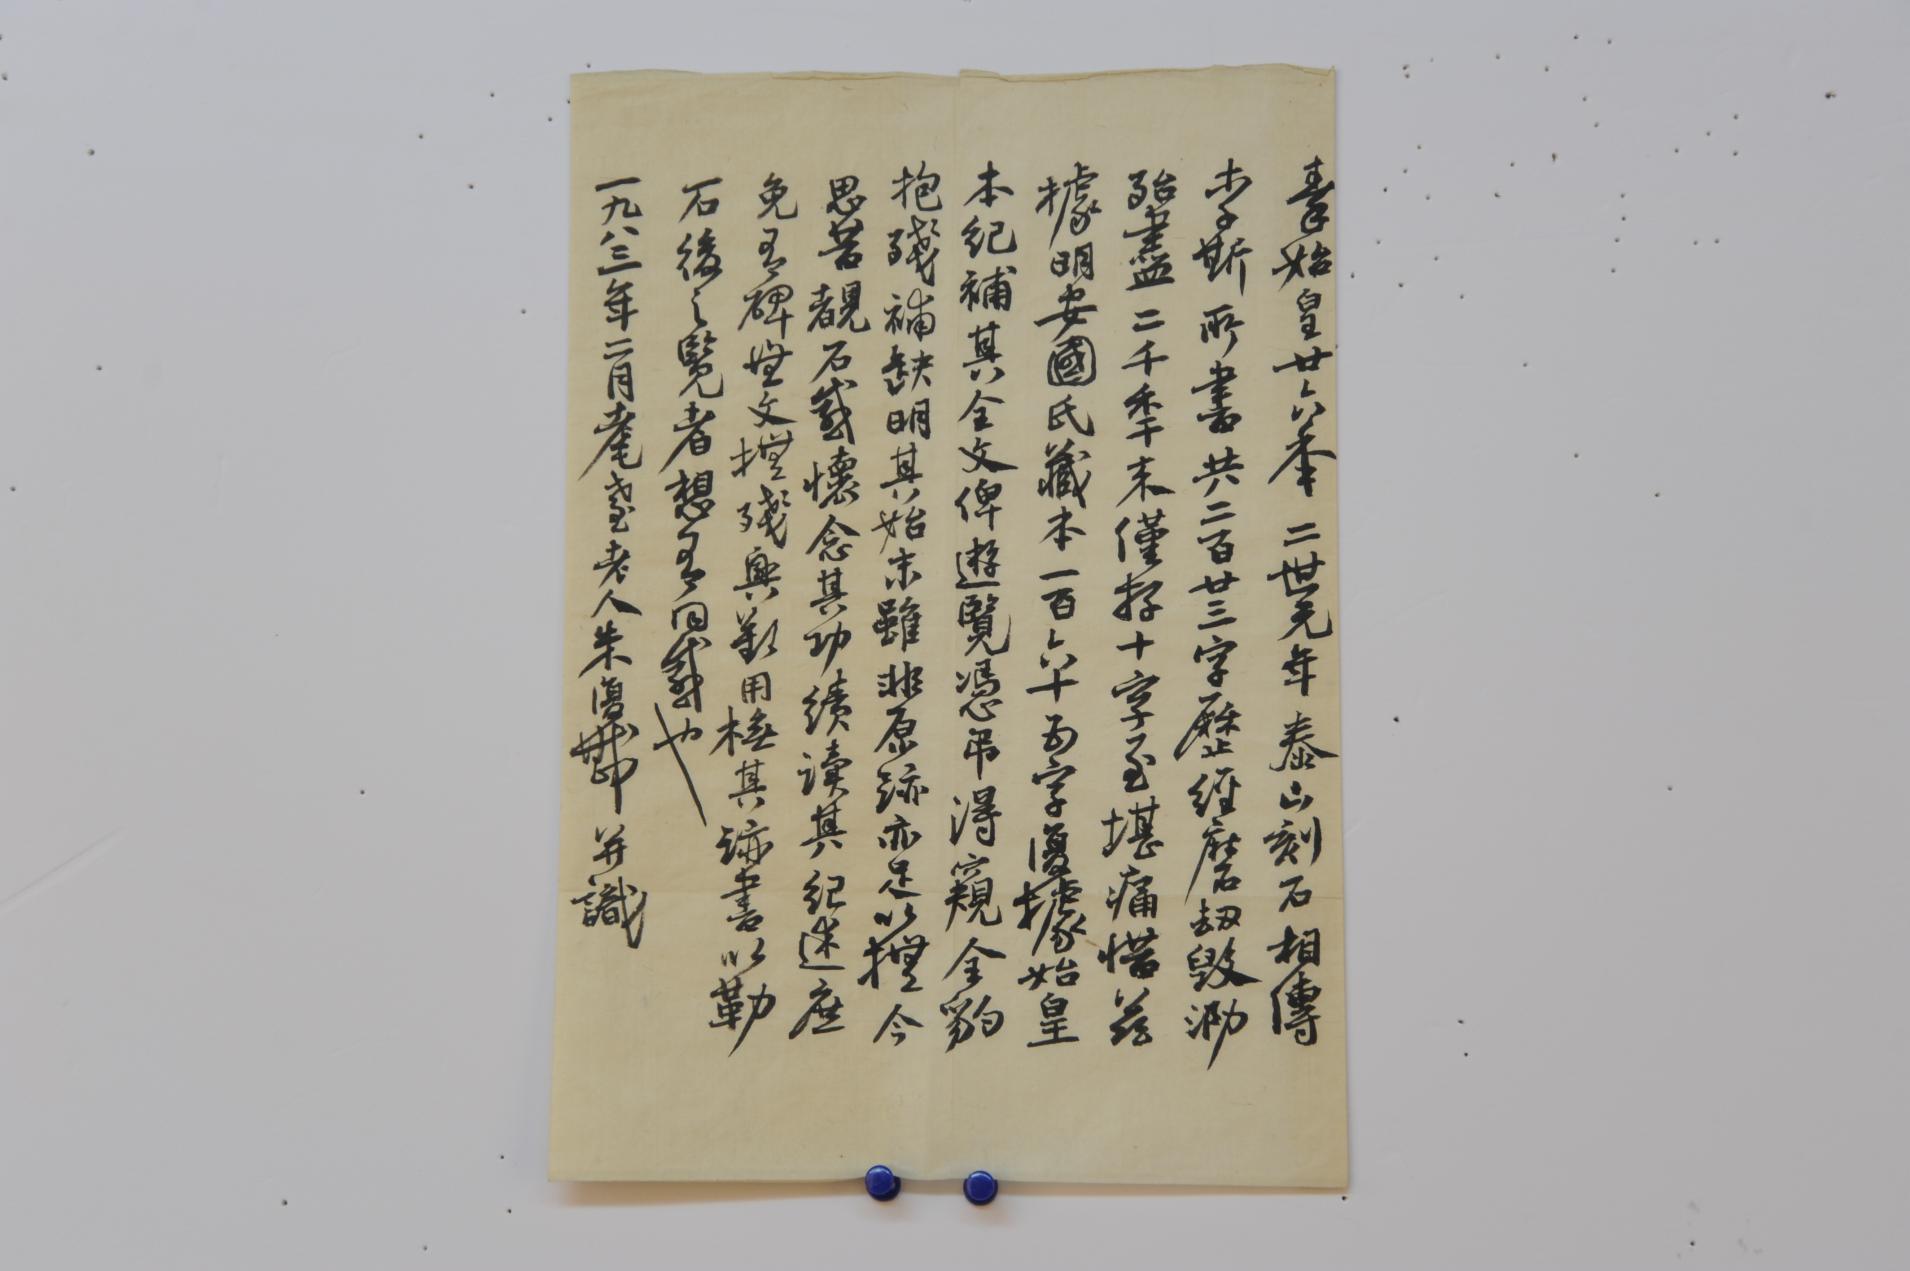 秦始皇廿六年二世元年泰山刻石相傳
李斯所書共二百廿三字歷經磨劫毀泐
殆盡二千年來僅存十字至堪痛惜茲
據明安國氏藏本一百六十五字復據始皇
本紀補其全文俾遊覽憑弔得窺全豹
抱殘補缺明其始末雖非原跡亦足以撫今
思昔覩石感懷念其功績讀其紀述庶
免有碑無文撫殘興歎用橅其跡書以勒
石後之覽者想有同感也
一九八三年二月耄耋老人朱復戡并識